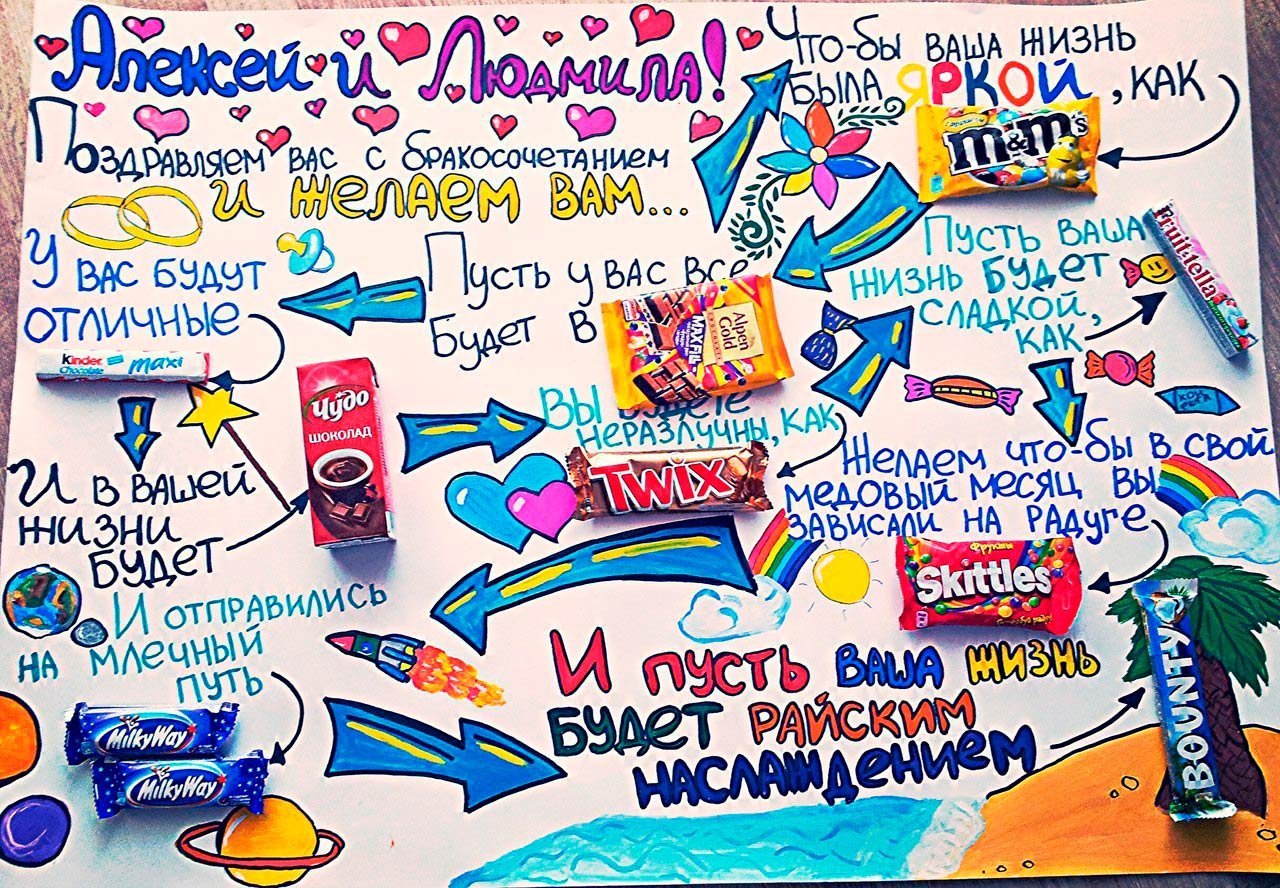 Алексей и Людмила!
Поздравляем вас с бракосочетанием
и желаем вам...
Что-бы ваша жизнь
была яркой, как
m&m's
Пусть у вас все
будет в
Alpen Gold
MAX FUN
У вас будут
отличные
kinder
Chocolate
maxi
И в вашей
жизни
будет
Чудо
ШОКОЛАД
Вы будете
неразлучны, как
TWIX
Пусть ваша
жизнь будет
сладкой,
как
Fruit-tella
Желаем что-бы в свой
медовый месяц вы
зависали на радуге
Фрукты
Skittles
И отправились
на млечный
путь
MilkyWay
MilkyWay
И пусть ваша жизнь
будет райским
наслаждением
BOUNTY